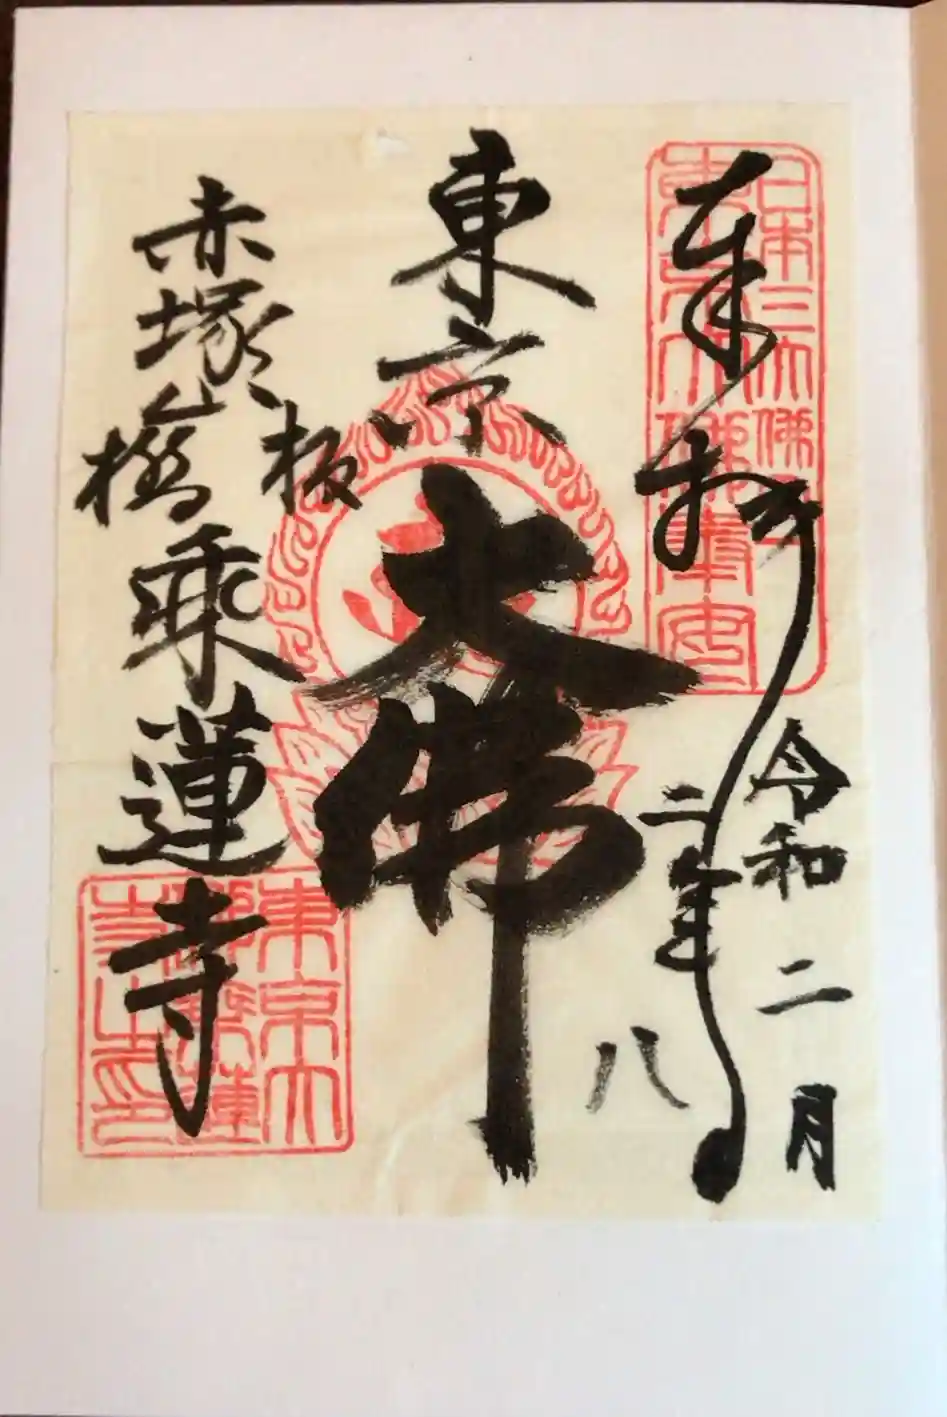 日本三大佛
東京大佛奉安
奉拝
令和二月
二年八
東京大佛
板橋
赤塚
乗蓮寺
東京大
佛乗蓮
寺之印